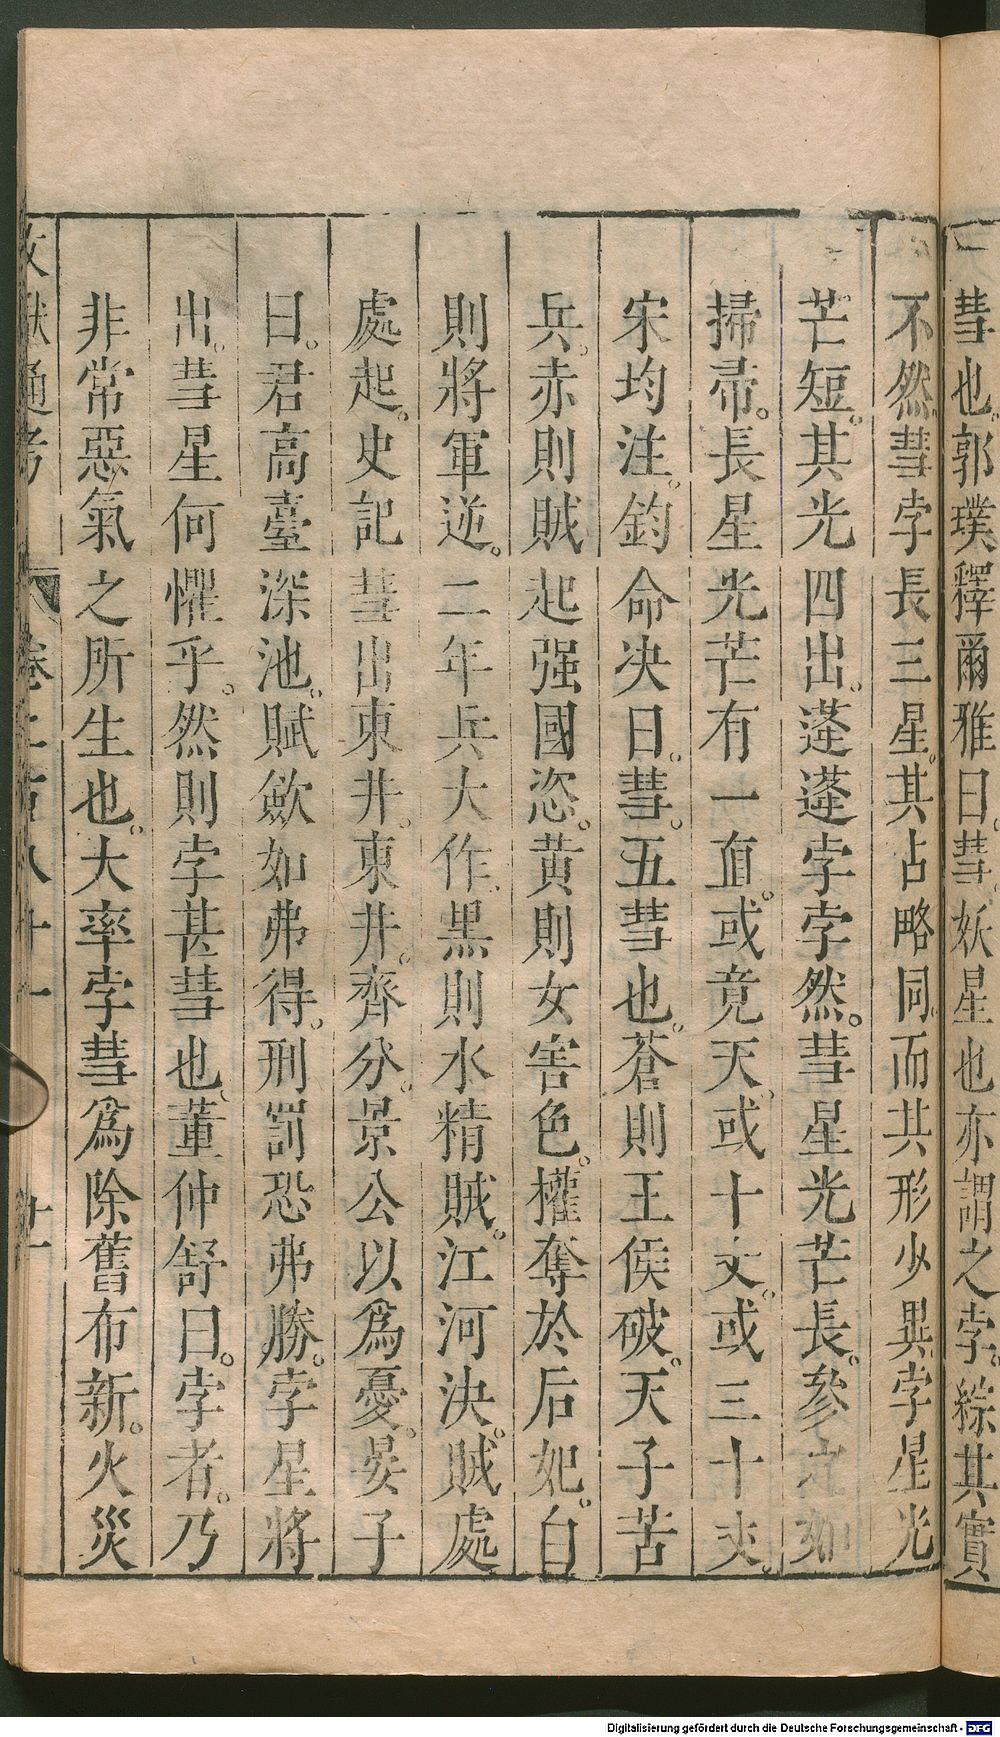 彗也。郭璞釋爾雅曰。彗。妖星也亦謂之孛。綜其實
不然。彗孛長三星。其占略同。而共形少異。孛星光
芒短。其光四出。蓬蓬孛孛然。彗星光芒長。參參如
掃帚。長星光芒有一直。或竟天。或十丈。或三十丈。
宋均注。鈞命決曰。彗。五彗也。蒼則王侯破。天子苦
兵。赤則賊起强國恣。黃則女害色。權奪於后妃。白
則將軍逆。二年兵大作。黑則水精賊。江河決。賊處
處起。史記彗出東井。東井。齊分。景公以爲憂。晏子
曰。君高臺深池。賦斂如弗得。刑罰恐弗勝。孛星將
出。彗星何懼乎。然則孛甚彗也。董仲舒曰。孛者。乃
非常惡氣之所生也。大率孛彗爲除舊布新。火災
文獻通考 卷二百八十一 廿一
Digitalisierung gefördert durch die Deutsche Forschungsgemeinschaft - DFG